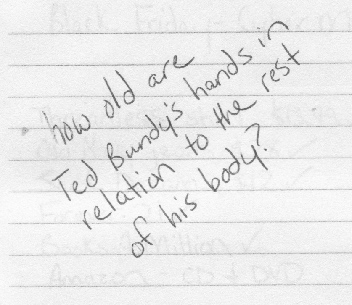 how old are
Ted Bundy's hands in
relation to the rest
of his body?
Black Friday - Cyber
Million
Amazon CD + DVD